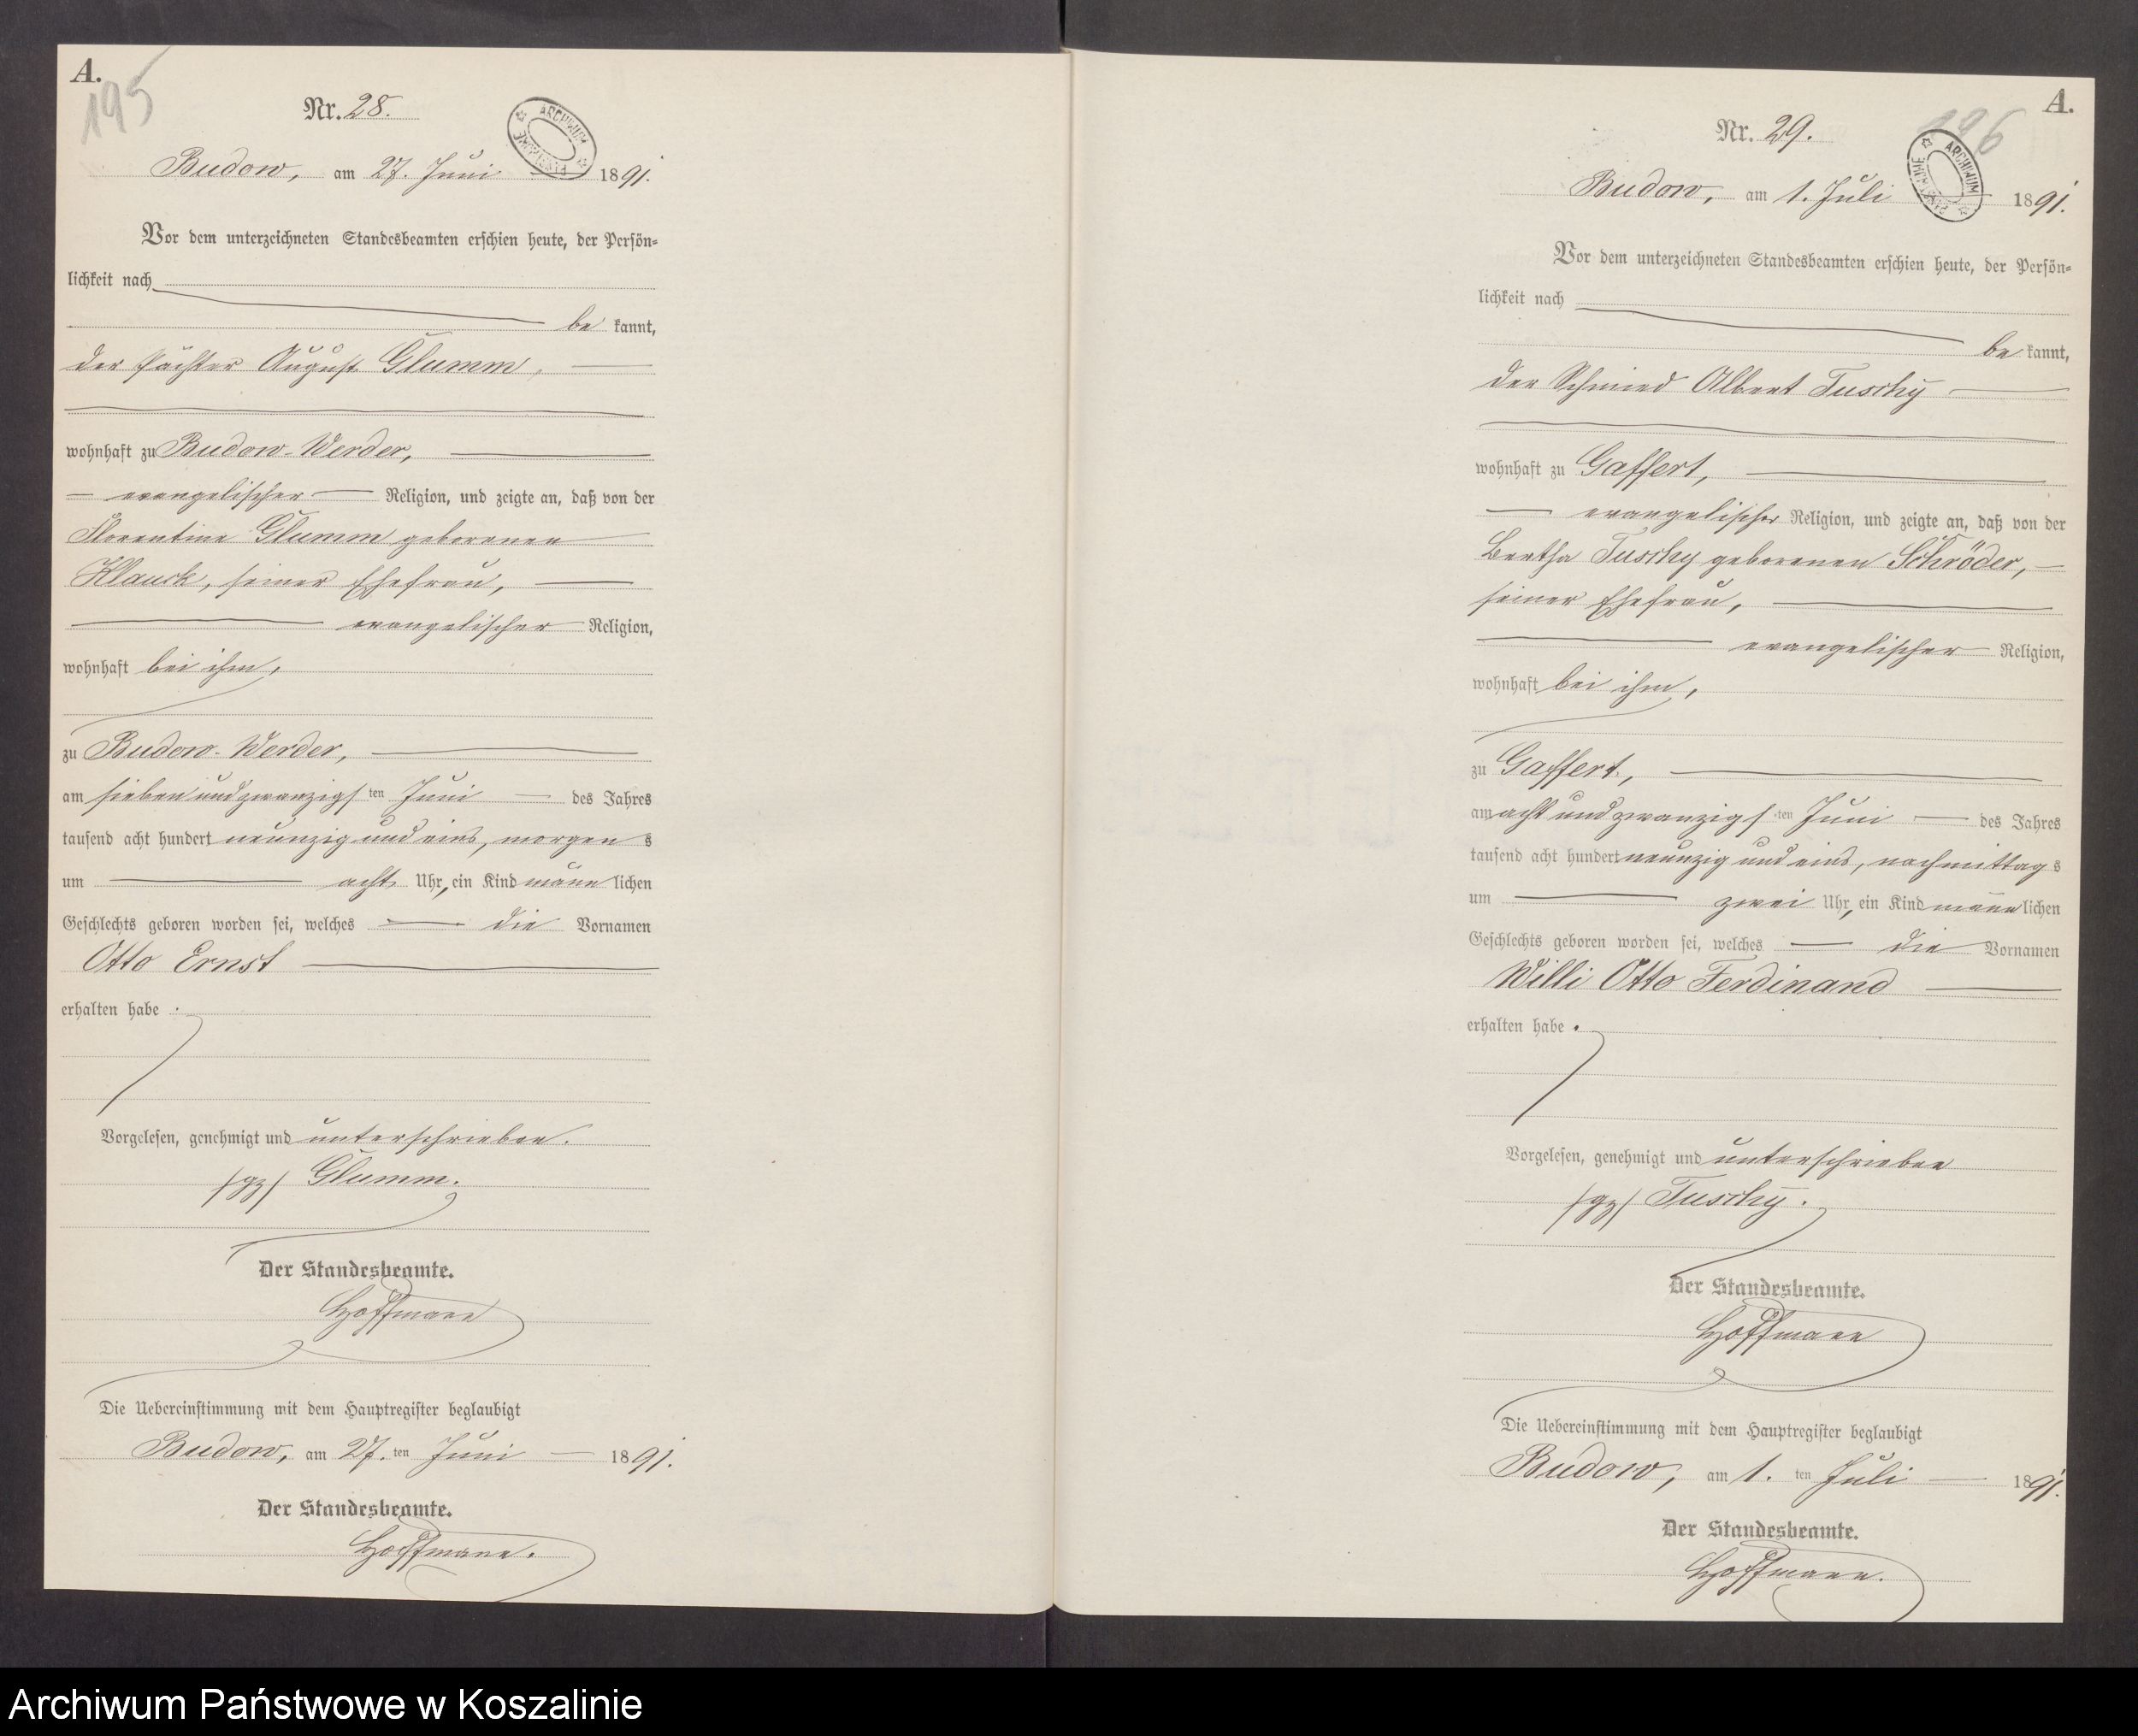 A.
195
Nr. 28.
ARCHIWUM PAŃSTWOWE
Budow, am 27. Juni 1891.
Vor dem unterzeichneten Standesbeamten erschien heute, der Persön=
lichkeit nach
be kannt,
der Pächter August Glumm,
wohnhaft zu Budow-Werder,
evangelischer Religion, und zeigte an, daß von der
Florentine Glumm geborenen
Klauck, seiner Ehefrau,
evangelischer Religion,
wohnhaft bei ihm,
zu Budow-Werder,
am sieben und zwanzigs ten Juni des Jahres
tausend acht hundert neunzig und eins, morgen s
um acht Uhr, ein Kind männ lichen
Geschlechts geboren worden sei, welches die Vornamen
Otto Ernst
erhalten habe.
Vorgelesen, genehmigt und unterschrieben.
/gz/ Glumm.
Der Standesbeamte.
Hoffmann
Die Uebereinstimmung mit dem Hauptregister beglaubigt
Budow, am 27. ten Juni 1891.
Der Standesbeamte.
Hoffmann.
A.
196
Nr. 29.
ARCHIWUM PAŃSTWOWE
Budow, am 1. Juli 1891.
Vor dem unterzeichneten Standesbeamten erschien heute, der Persön=
lichkeit nach
be kannt,
der Schmied Albert Tuschy
wohnhaft zu Gaffert,
evangelischer Religion, und zeigte an, daß von der
Bertha Tuschy geborenen Schröder,
seiner Ehefrau,
evangelischer Religion,
wohnhaft bei ihm,
zu Gaffert,
am acht und zwanzigs ten Juni des Jahres
tausend acht hundert neunzig und eins, nachmittag s
um zwei Uhr, ein Kind männ lichen
Geschlechts geboren worden sei, welches die Vornamen
Willi Otto Ferdinand
erhalten habe.
Vorgelesen, genehmigt und unterschrieben
/gz/ Tuschy.
Der Standesbeamte.
Hoffmann
Die Uebereinstimmung mit dem Hauptregister beglaubigt
Budow, am 1. ten Juli 1891.
Der Standesbeamte.
Hoffmann.
Archiwum Państwowe w Koszalinie